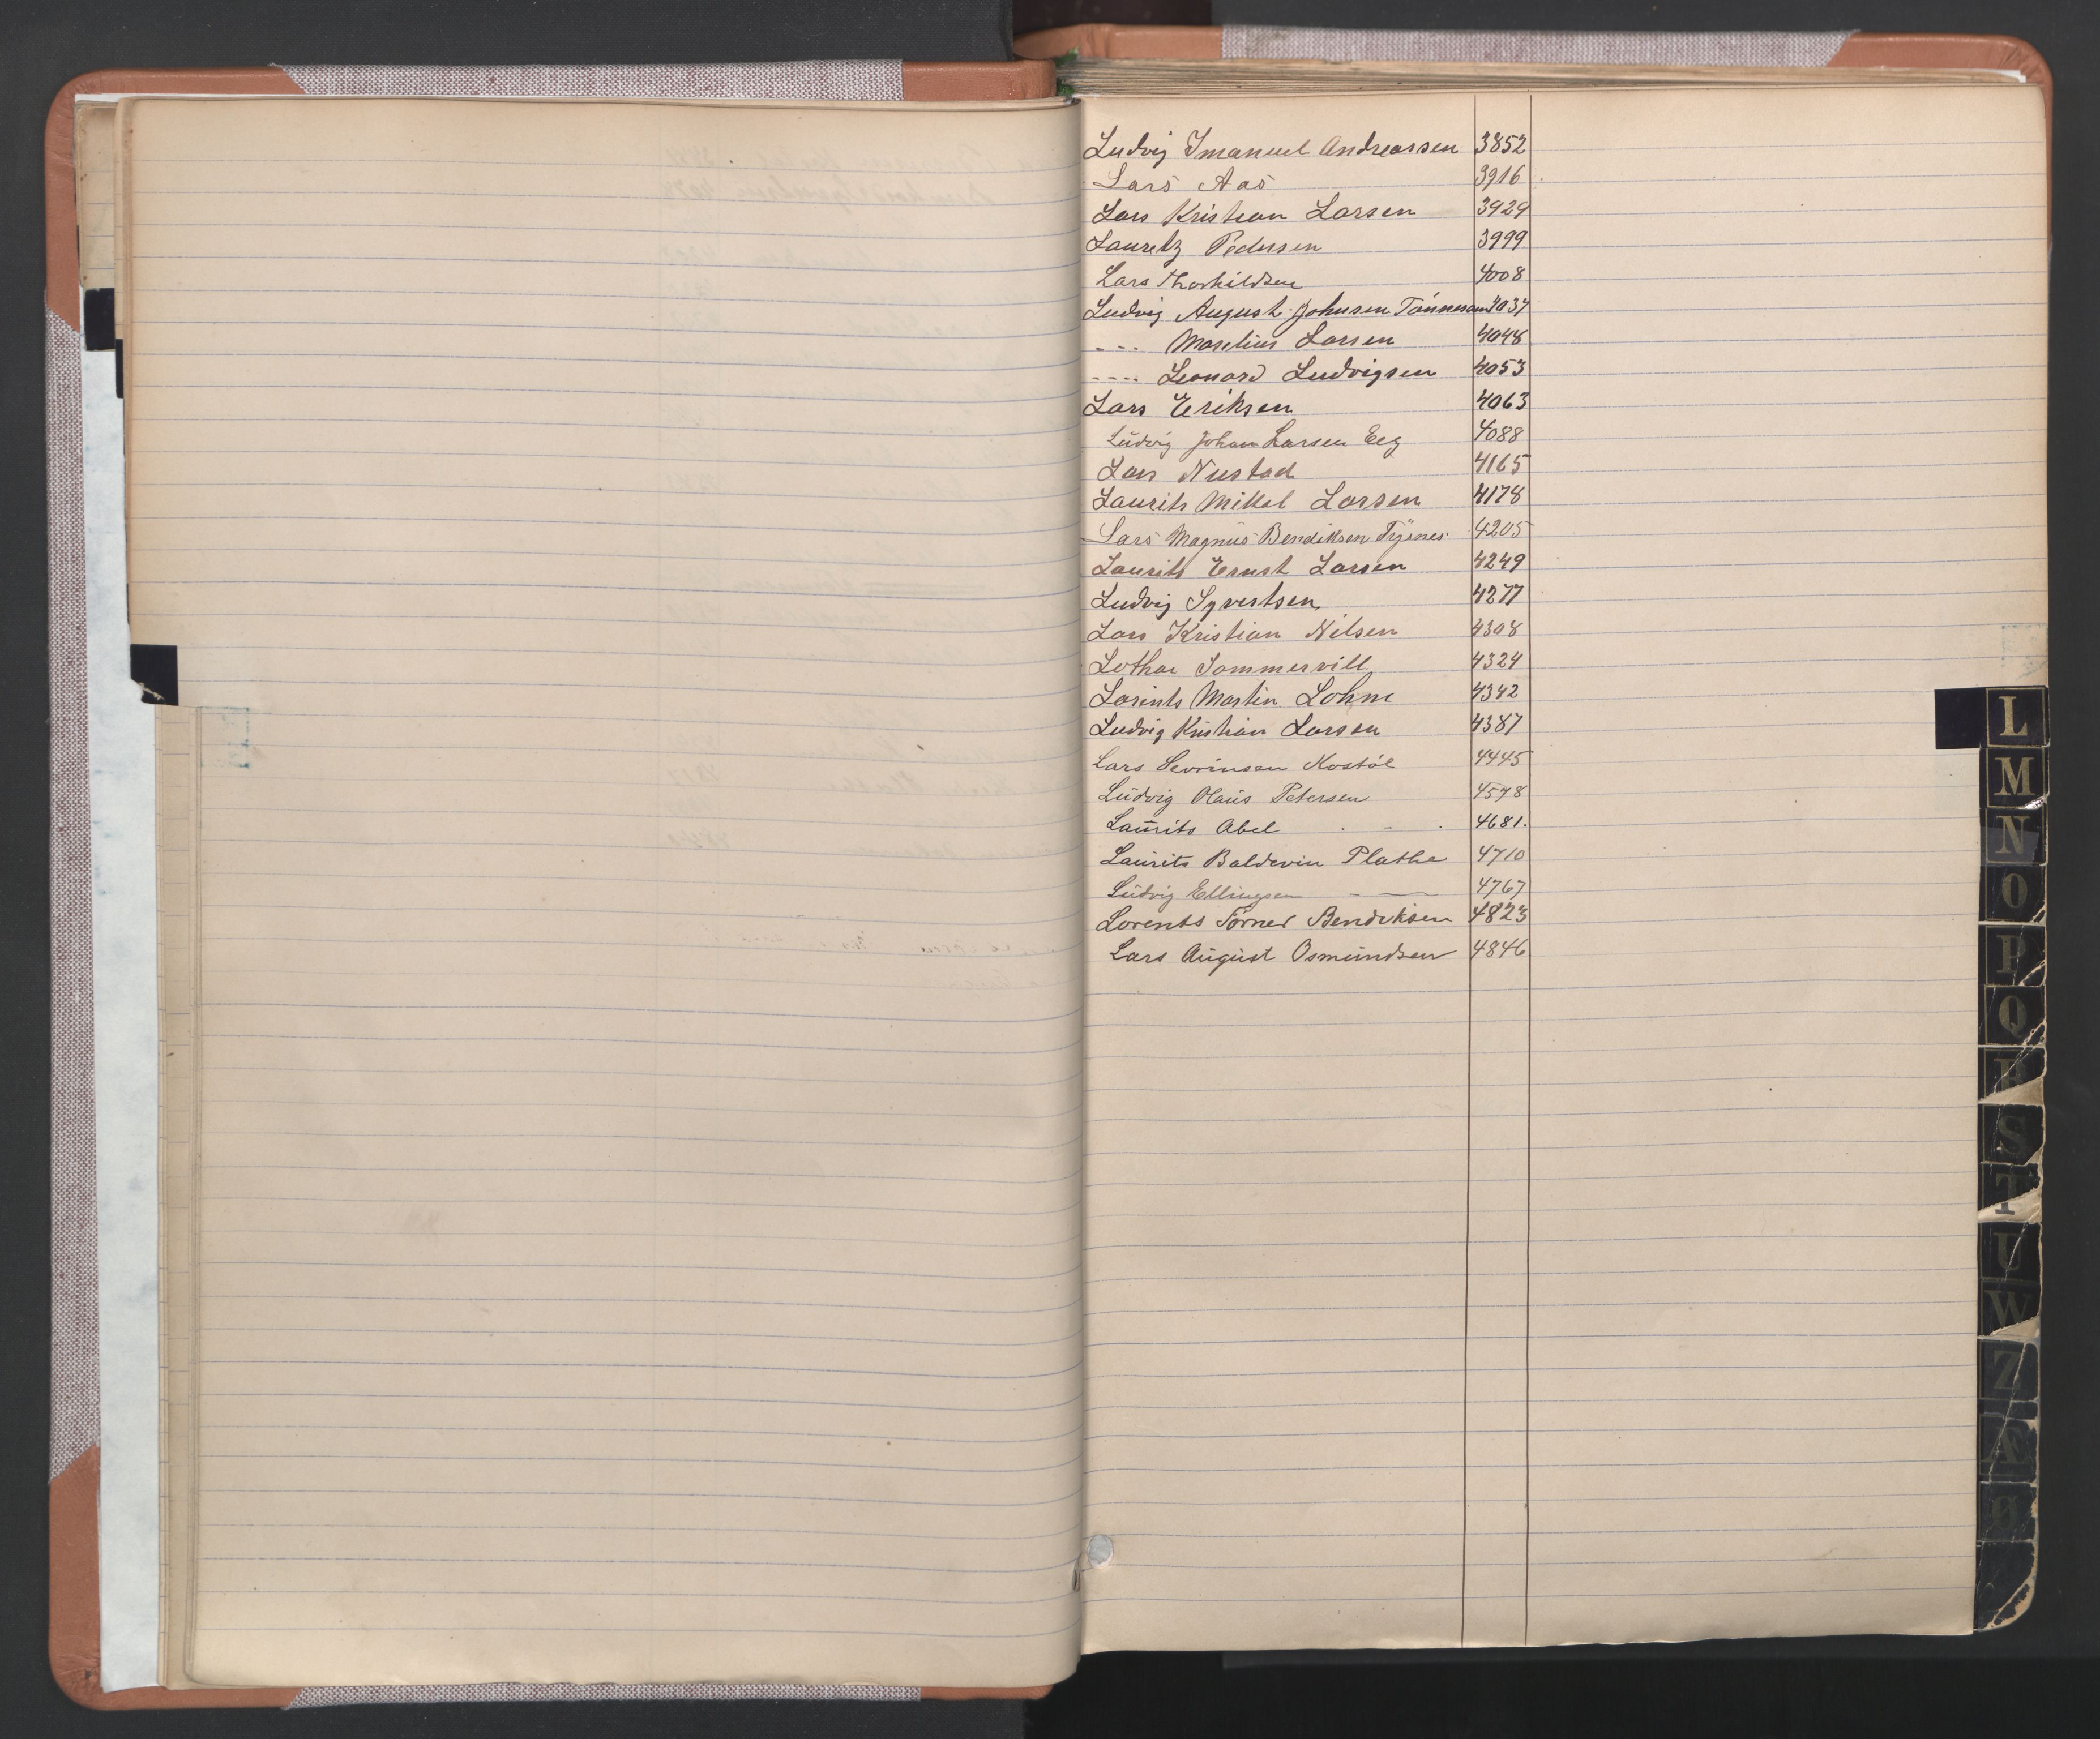 Ludvig Imanuel Andreassen 3852
Lars Aas 3916
Lars Kristian Larsen 3929
Lauretz Pedersen 3999
Lars Thorkildsen 4008
Ludvig August Johnsen Tønnesen 4037
---- Marelius Larsen 4048
---- Leonard Ludvigsen 4053
Lars Eriksen 4063
Ludvig Johan Larsen Eeg 4088
Lars Nustad 4165
Laurits Mikkel Larsen 4178
Lars Magnus Bendiksen 4205
Laurits Ernst Larsen 4249
Ludvig Syvertsen 4277
Lars Kristian Nilsen 4308
Lothar Sommervill 4324
Lorents Martin Lohne 4342
Ludvig Kristian Larsen 4387
Lars Sevrinsen Kostøl 4445
Ludvig Olaus Petersen 4578
Laurits Abel - - - 4681.
Laurits Baldevin Plathe 4710
Ludvig Ellingsen - — 4767
Lorents Tørner Bendiksen 4823
Lars August Osmundsen 4846
L
M
N
O
P
Q
R
S
T
U
W
Z
Æ
Ø